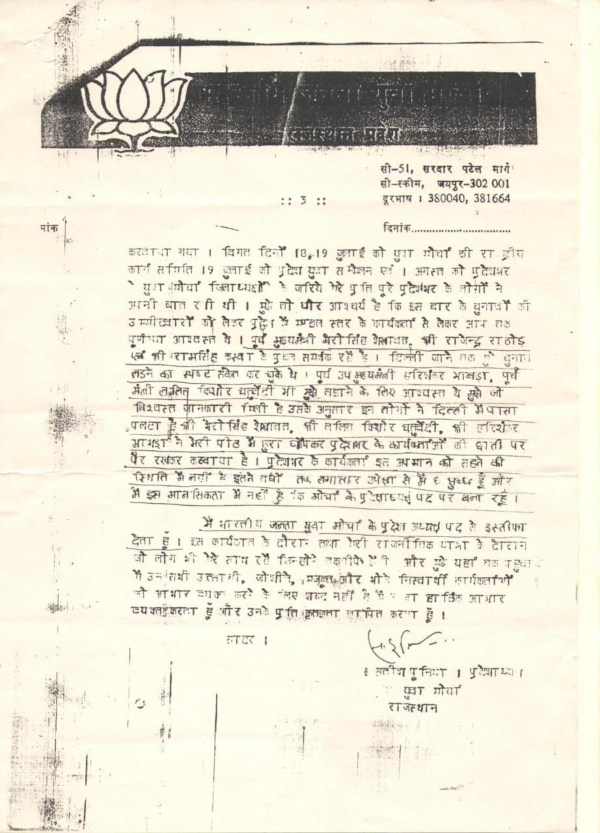 राजस्थान प्रदेश
सी-51, सरदार पटेल मार्ग
सी-स्कीम, जयपुर-302 001
दूरभाष : 380040, 381664
:: 3 ::
मांक
दिनांक
करवाया गया । विगत दिनों 18,19 जुलाई को युवा मोर्चा की
कार्य समिति 19 जुलाई को प्रदेश युवा सम्मेलन एवं 1 अगस्त को प्रदेशभर
युवा मोर्चा जिलाध्यक्षों के जरिये मेरे प्रति पूरे प्रदेशभर के लोगों ने
अपनी बात रखी थी । मुझे तो घोर आश्चर्य है कि इस बार के चुनावों की
उम्मीदवारी को लेकर प्रदेश के मण्डल स्तर के कार्यकर्ता से लेकर आप तक
पूर्णतया आश्वस्त थे । पूर्व मुख्यमंत्री भैरोसिंह शेखावत, श्री राजेन्द्र राठौड़
एवं श्री रामसिंह कस्वा के प्रबल समर्थक रहे हैं । दिल्ली जाने तक मुझे चुनाव
लड़ने का स्पष्ट संकेत कर चुके थे । पूर्व उप मुख्यमंत्री हरिशंकर भाभड़ा, पूर्व
मंत्री ललित किशोर चतुर्वेदी भी मुझे लड़ाने के लिए आश्वस्त थे मुझे जो
विश्वस्त जानकारी मिली है उसके अनुसार इन लोगों ने दिल्ली में पासा
पलटा है श्री भैरोसिंह शेखावत, श्री ललित किशोर चतुर्वेदी, श्री हरिशंकर
भाभड़ा ने मेरी पीठ में छुरा घोंपकर प्रदेशभर के कार्यकर्ताओं की छाती पर
पैर रखकर करवाया है । प्रदेशभर के कार्यकर्ता इस अपमान को सहने की
स्थिति में नहीं थे इतने वर्षों तक लगातार उपेक्षा से मैं क्षुब्ध हूँ और
मैं इस मानसिकता में नहीं हूँ कि मोर्चा के प्रदेशाध्यक्ष पद पर बना रहूँ ।
मैं भारतीय जनता युवा मोर्चा के प्रदेश अध्यक्ष पद से इस्तीफा
देता हूँ । इस कार्यकाल के दौरान तथा मेरी राजनीतिक यात्रा के दौरान
जो लोग भी मेरे साथ रहे जिन्होंने और मुझे यहां तक
मैं उन सभी उत्साही, जोशीले, और भोले निस्वार्थी कार्यकर्ताओं
को आभार व्यक्त करने के लिए शब्द नहीं है हार्दिक आभार
व्यक्त करता हूँ और उनके प्रति कृतज्ञता ज्ञापित करता हूँ ।
सादर ।
सतीश पूनिया । प्रदेशाध्यक्ष ।
युवा मोर्चा
राजस्थान